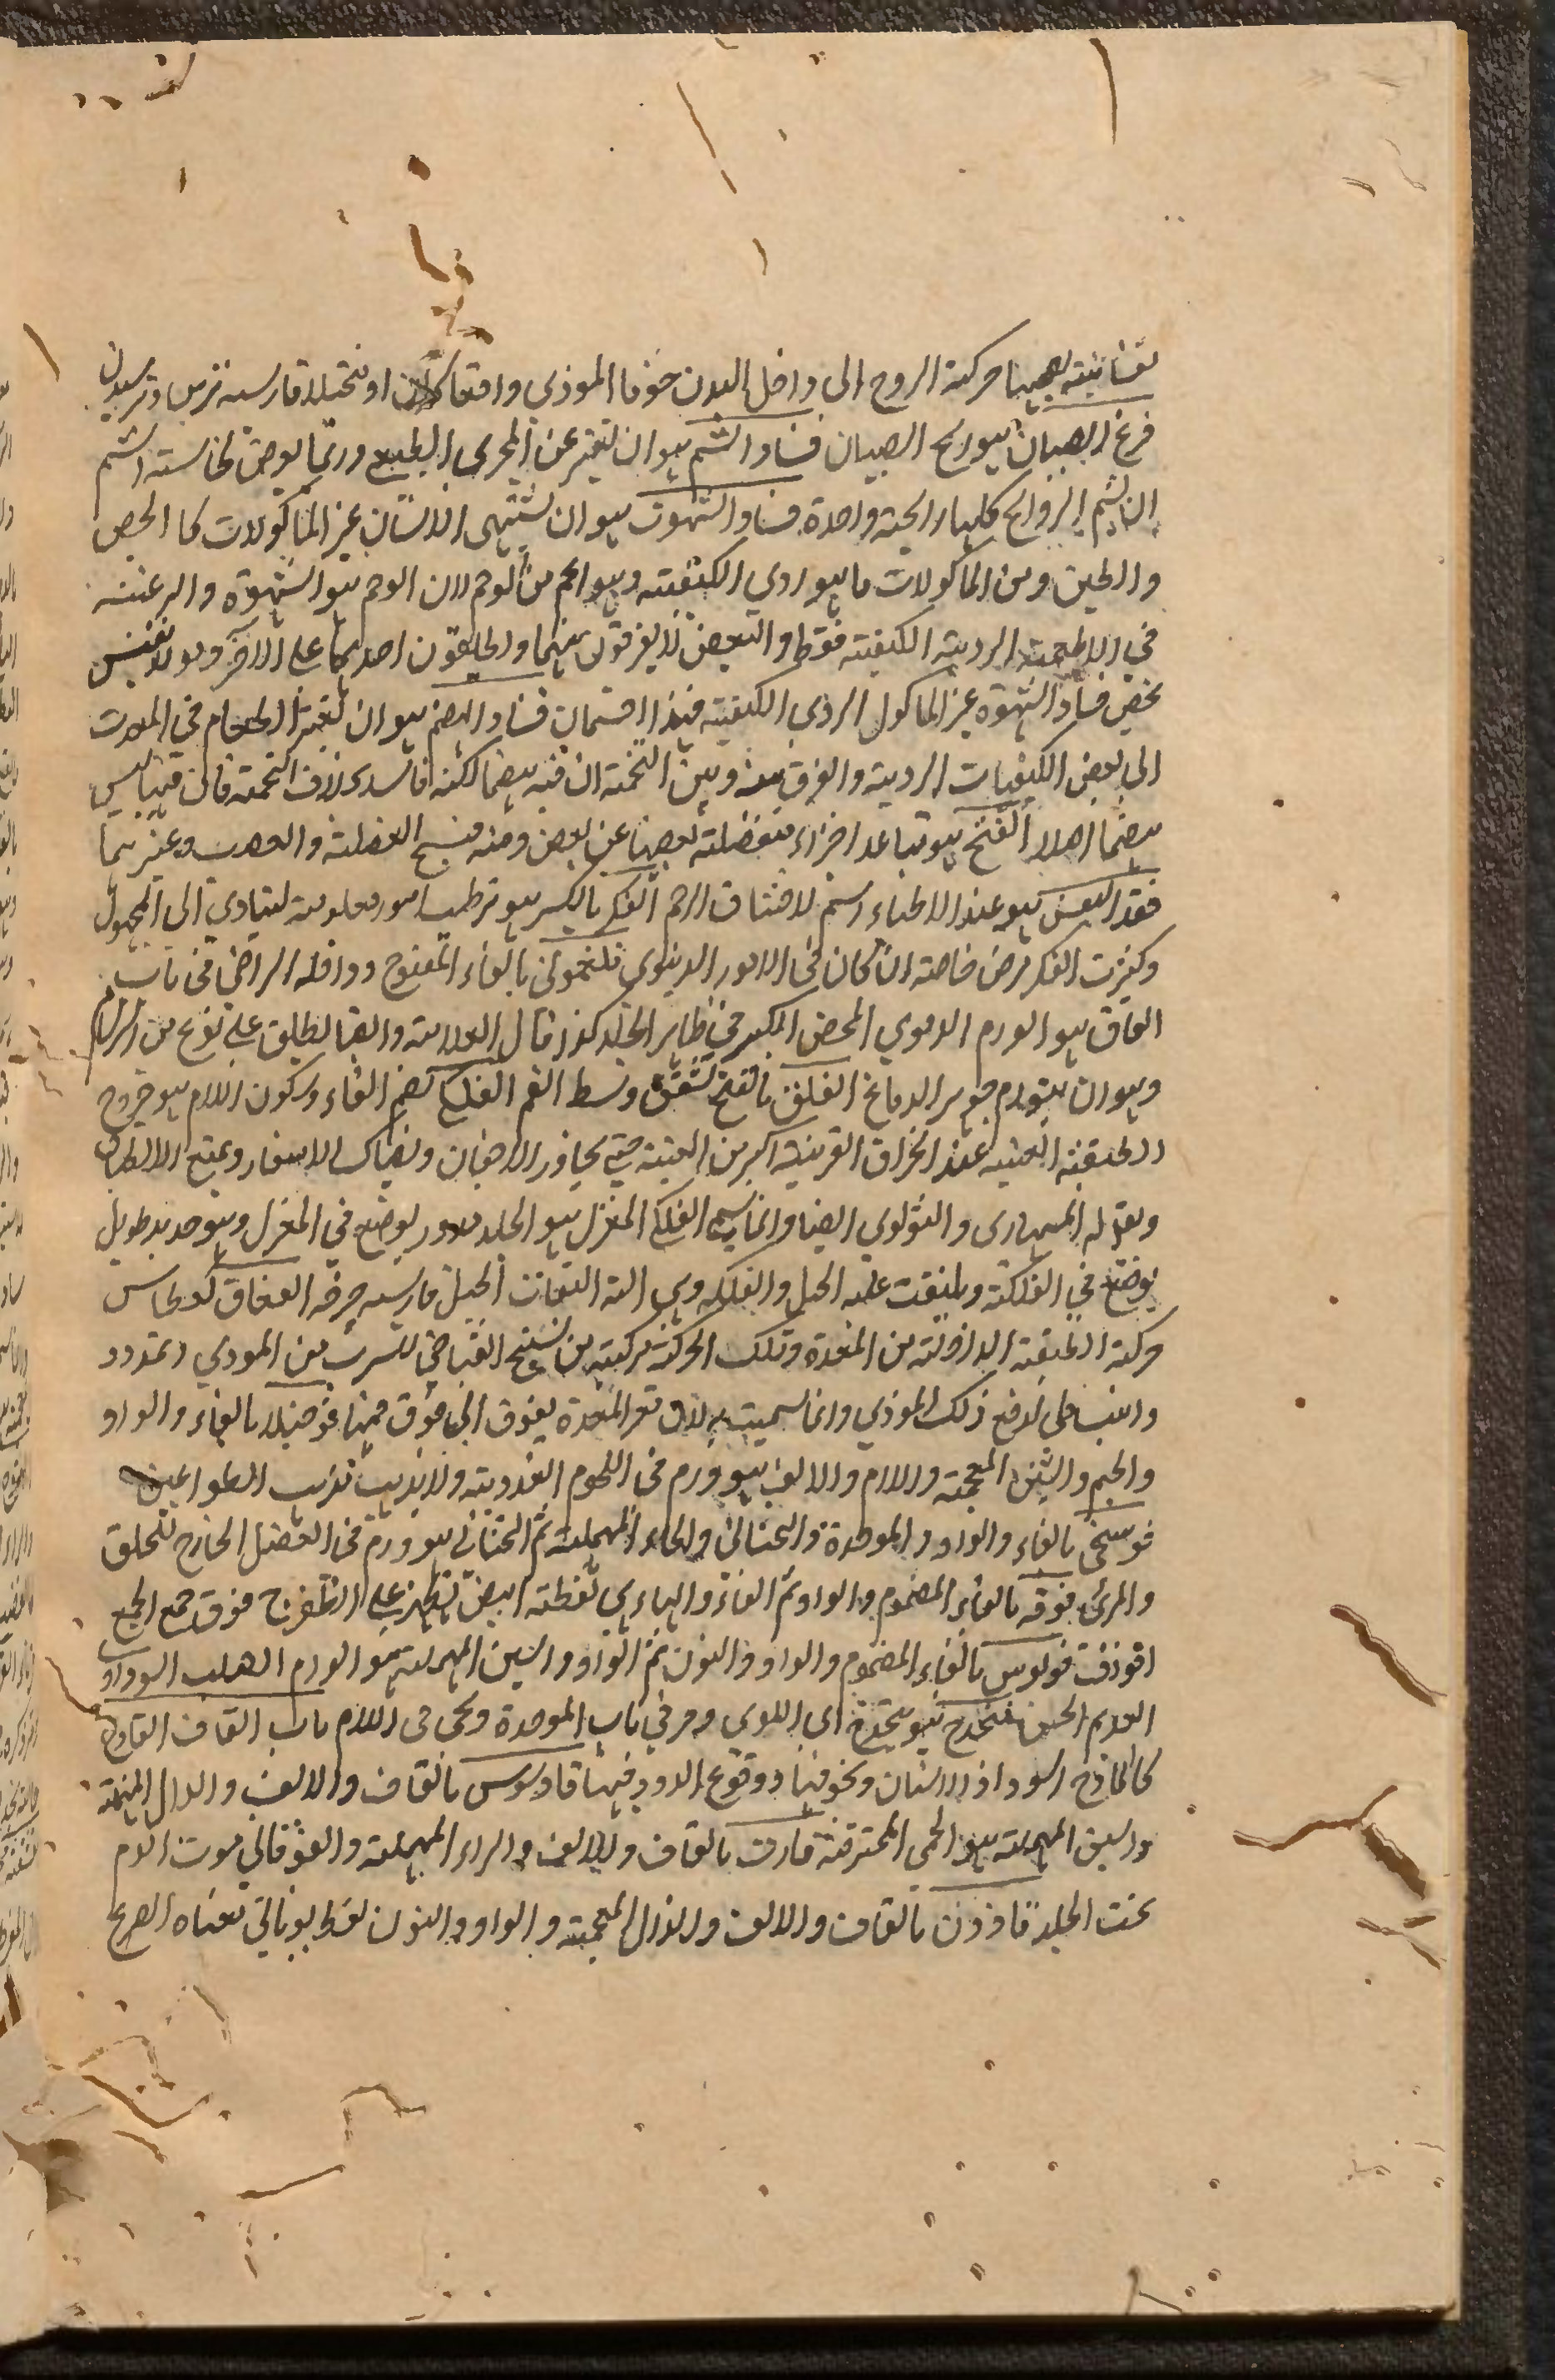 نفسانيته يصحبها حركة الروح الى داخل البدن خوفا الموذي واقعا كان او متخيلا فارسيه ترس وترسيدن
فزع الصبيان هو ريح الصبيان فساد الشم هو ان يتغير عن المجرى الطبيعي وربما يعرض لحاسته الشم
ان يشم الروائح كلها رائحة واحدة فساد الشهوت هو ان يشتهى الانسان غير الماكولات كالجص
والطين ومن الماكولات ما هو ردي الكيفيته وهو اعم من الوحم لان الوحم هو الشهوة والرغبته
في الاطعمة الردية الكيفيته فقط والبعض لا يفرقون بينهما ويطلقون احدهما على الاخر
يخص فساد الشهوة غير الماكول الردي الكيفيته فساد الهضم هو ان يتغير الطعام في المعدت
الى بعض الكيفيات الردية والفرق بينه وبين التخمته ان فيه هضما لكنه فاسد بخلاف التخمته فان فيها ليس
هضما اصلا الفسخ هو تباعد اجزاء بعضها عن بعض ومنه فسخ العضلته والعصب وغيرهما
فقد هو عند الاطباء اسم لاختناق الرحم الفكر بالكسر هو ترطيب امور معلومته ليتادي الى المجهول
وكثرت الفكر مرض خاصته ان كان في الامور الدينوي فلغموني بالفاء المفتوح ودواقله الراضي في باب
الفاق هو الورم الدموي المحض الكبير في ظاهر الجلد كذا قال العلامته وايضا يطلق على نوع من السرسام
وهو ان يتورم جوهر الدماغ الفلق بالفتح تشقق وسط الفم الفلكي بضم الفاء وسكون اللام هو خروج
الطبقته العنبيه عند انخراق القرنيه اكبر من العنبته حتى يجاوز الاجفان ويضاك الاشفار ويمنع الانطباق
ويقال له المسماري والثولولي ايضا وانما سمي الفلكي المغزل هو الجلد مدور يوضع في المغزل وهو حديد طويل
يوضع في الفلكته ويلتفت عليه الحبل والفلكه وهي الته التفات الحبل فارسيه چرخه الفواق كعطاس
حركته الطبقته الداخلته من المعدة وتلك الحركته مركبته من تشنج انقباضي للهرب من الموذي وتمدد
وانبساطي لدفع ذلك الموذي وانما سميت به لان قعر المعدة يفوق الى فوق فمها فوجيلا بالفاء والواو
والجيم والشين المعجمته واللام والالف هو ورم في اللحوم الغددية ولا يذهب مذهب الطواعين
فوسخي بالفاء والواو والموحدة والتحتاني والحاء المهملته ثم التحتاني هو ورم في العضل الخارج للحلق
والمرئ فوفه بالفاء المضموم والواو ثم الفاء والهاء هي نقطته ابيض تظهر على الظفر ج فوف جمع الجمع
افوففت فونوس بالفاء المضموم والواو والنون ثم الواو والسين المهملته هو الورم الصلب السوداوي
العديم الحس فيخدج هو بيخدج اي اللوي ومر في باب الموحدة ويجى في اللام باب القاف القادح
كالقادح السواد في الاسنان وتجوفها ووقوع الدود فيها قادسوس بالقاف والالف والدال المهملته
والسين المهملته هو الحمى المحترقته قارت بالقاف والالف والراء المهملته والفوقاني موت الدم
تحت الجلد قاذون بالقاف والالف والذال المعجمته والواو والنون لفظ يوناني معناه الصرع